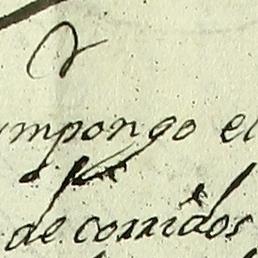 mpongo el
de corridos